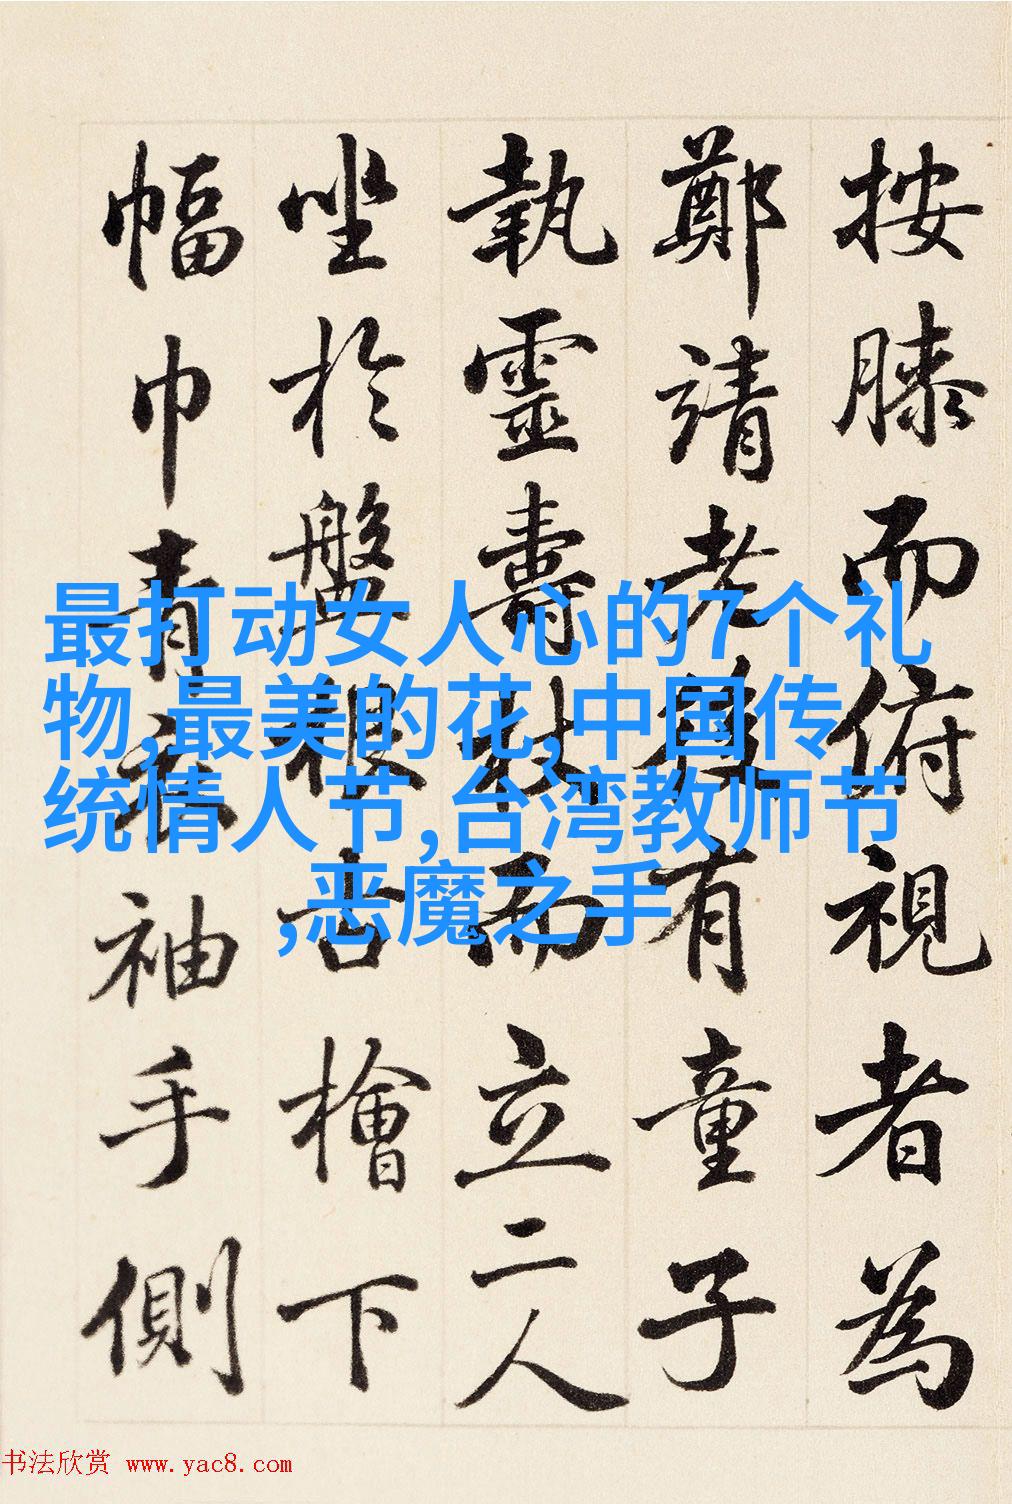 按膝而俯視者為
鄭靖老後有童子
執靈壽杖而立二人
坐於盤根古檜下
幅巾青衣袖手側
最打动女人心的7个礼
物,最美的花,中国传
统情人节,台湾教师节
,恶魔之手
书法欣赏 www.yac8.com